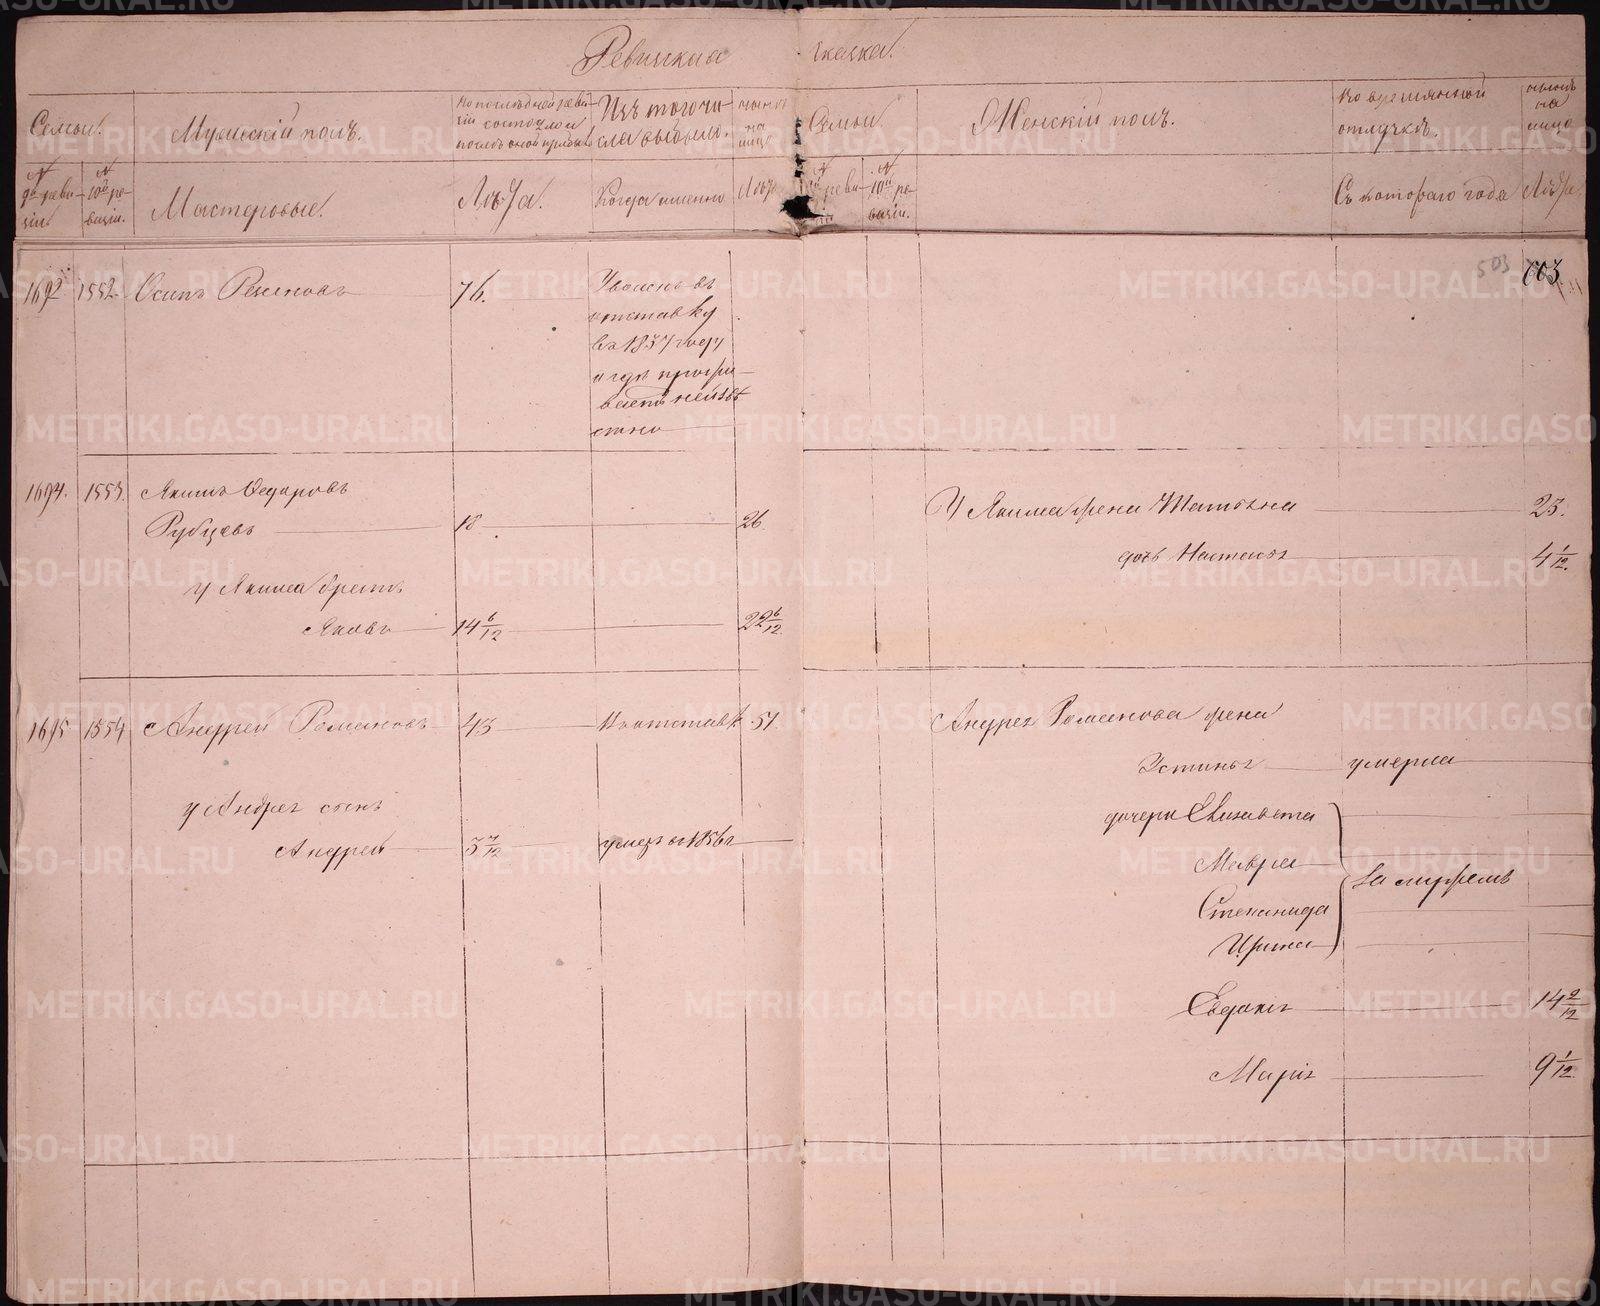 Ревизская сказка.
Семьи.
Мужескій полъ.
По последней реви-
зіи состояло и
после оной прибыло
Изъ того чи-
сла выбыло.
ныне
на
лицо
Семьи
Женскій полъ.
Во временной
отлучке.
ныне
на
лицо
№
9й реви-
зіи.
№
10й ре-
визіи.
Мастеровые.
Лѣта.
Когда именно
Лѣта
№
реви-
зіи
№
10й ре-
визіи.
Съ котораго года
Лѣта.
503
1692
1552
Осипъ
76.
Уволенъ въ
отставку
въ 1837 году
и где прожи-
ваетъ неизве-
стно
1694.
1553.
Якимъ Федоровъ
Рубцовъ
18
26
У Якима жена Татьяна
23.
дочь Настасья
4 1/12.
У Якима братъ
Яковъ
14 6/12
22 6/12
1695
1554
Андрей Романовъ
43
въ отставке
51.
Андрея Романова жена
Устинья
умерла
у Андрея сынъ
Андрей
3 7/12
умеръ въ 1856 г
дочери Елизавета
Мавра
Степанида
Ирина
За мужемъ
Евдокія
14 2/12
Марія
9 1/12
METRIKI.GASO-URAL.RU